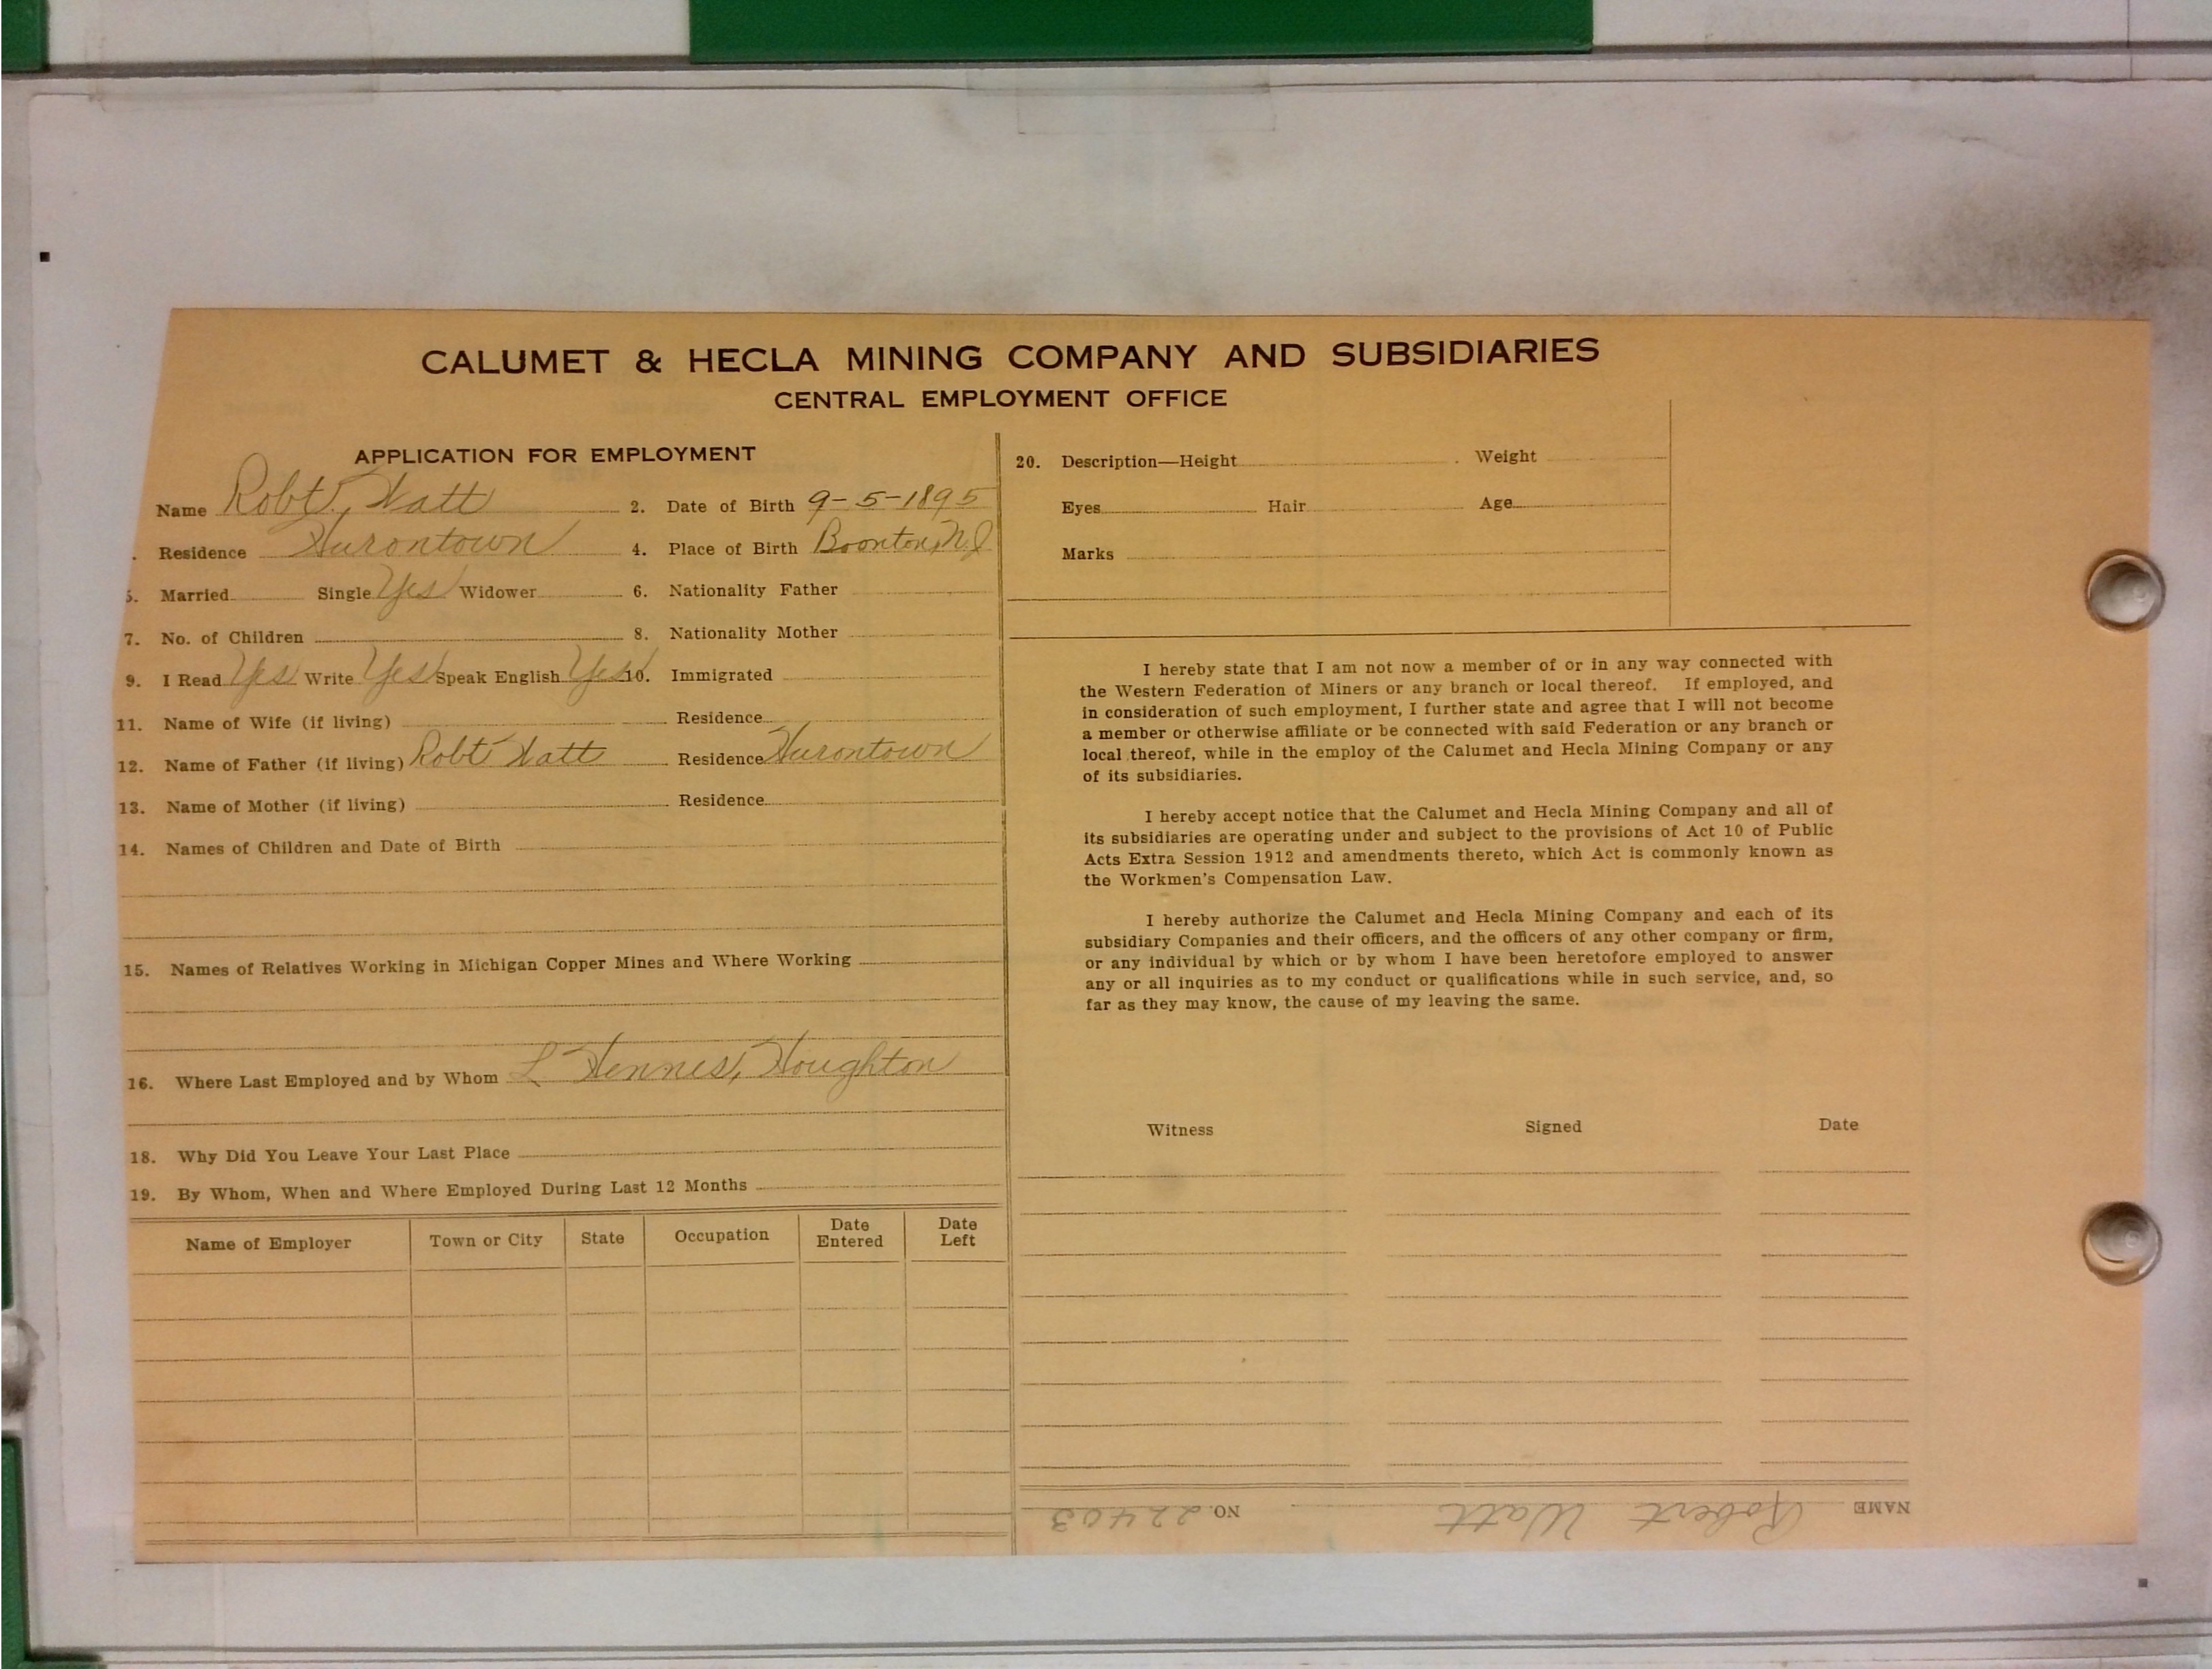 CALUMET & HECLA MINING COMPANY AND SUBSIDIARIES
CENTRAL EMPLOYMENT OFFICE
APPLICATION FOR EMPLOYMENT
Name Robt. Watt 2. Date of Birth 9-5-1895
. Residence Hurontown 4. Place of Birth Boonton, N.J
5. Married Single Yes Widower 6. Nationality Father
7. No. of Children 8. Nationality Mother
9. I Read Yes Write Yes Speak English Yes 10. Immigrated
11. Name of Wife (if living) Residence
12. Name of Father (if living) Robt Watt Residence Hurontown
13. Name of Mother (if living) Residence
14. Names of Children and Date of Birth
15. Names of Relatives Working in Michigan Copper Mines and Where Working
16. Where Last Employed and by Whom L Hennes, Houghton
18. Why Did You Leave Your Last Place
19. By Whom, When and Where Employed During Last 12 Months
Name of Employer Town or City State Occupation Date Entered Date Left
20. Description—Height Weight
Eyes Hair Age
Marks
I hereby state that I am not now a member of or in any way connected with
the Western Federation of Miners or any branch or local thereof. If employed, and
in consideration of such employment, I further state and agree that I will not become
a member or otherwise affiliate or be connected with said Federation or any branch or
local thereof, while in the employ of the Calumet and Hecla Mining Company or any
of its subsidiaries.
I hereby accept notice that the Calumet and Hecla Mining Company and all of
its subsidiaries are operating under and subject to the provisions of Act 10 of Public
Acts Extra Session 1912 and amendments thereto, which Act is commonly known as
the Workmen's Compensation Law.
I hereby authorize the Calumet and Hecla Mining Company and each of its
subsidiary Companies and their officers, and the officers of any other company or firm,
or any individual by which or by whom I have been heretofore employed to answer
any or all inquiries as to my conduct or qualifications while in such service, and, so
far as they may know, the cause of my leaving the same.
Witness Signed Date
NAME Robert Watt NO. 22403